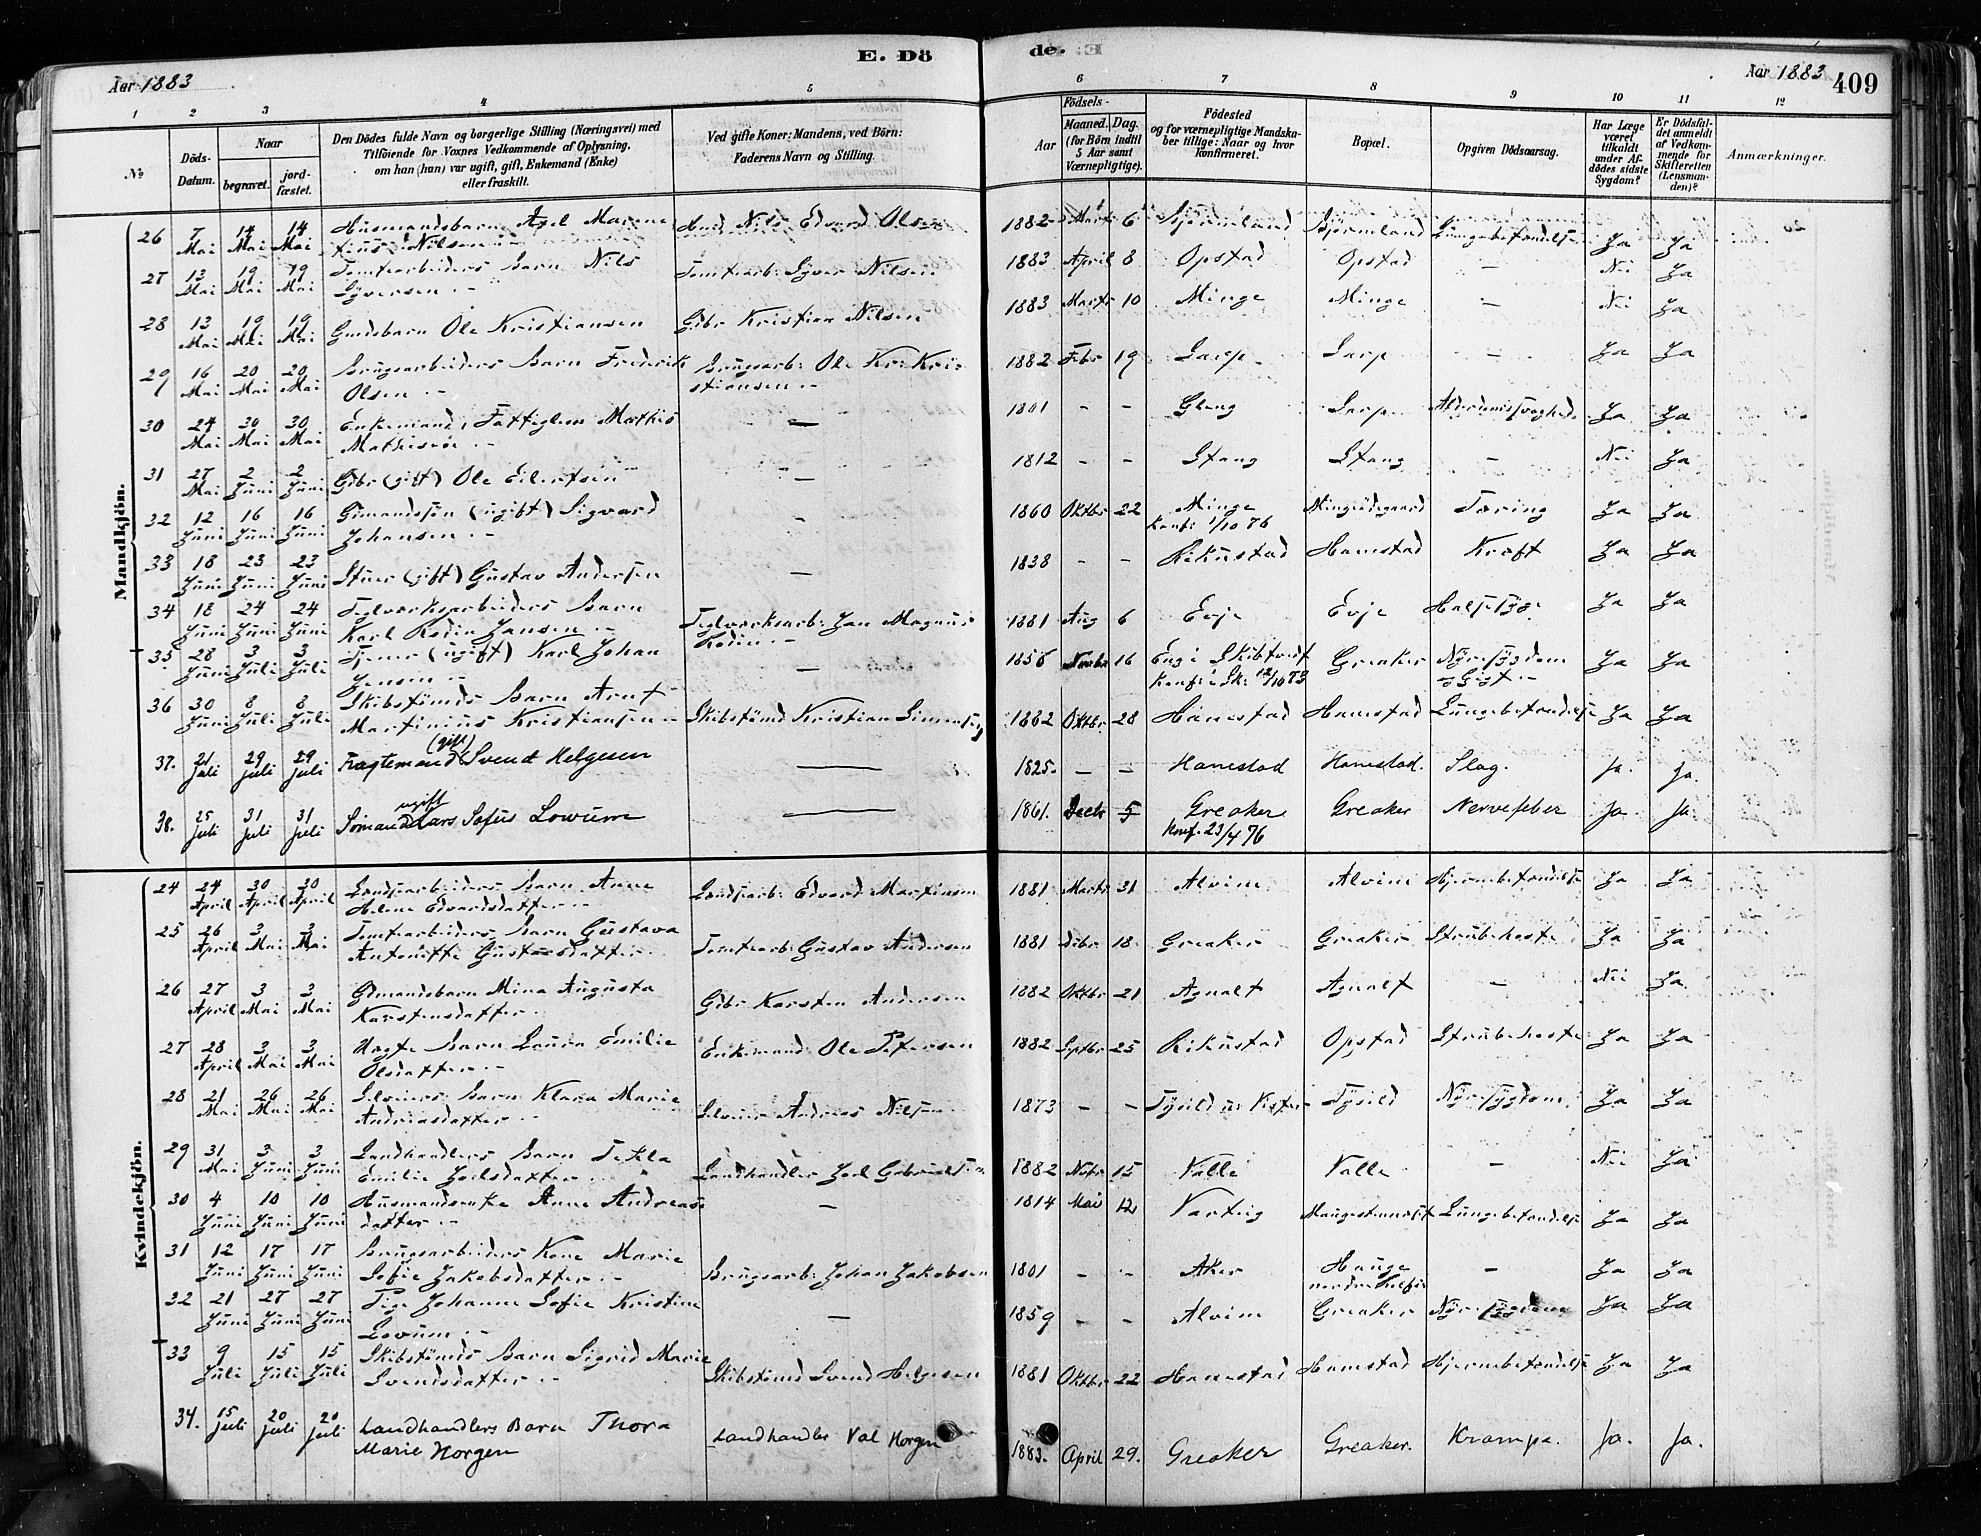 E. Dö de.
Aar 1883
Aar 1883 409
1 2 3 4 5 6 7 8 9 10 11 12
No Döds-Datum. Naar begravet. jord-fæstet.
Den Dödes fulde Navn og borgerlige Stilling (Næringsvei) med Tilföiende for Voxnes Vedkommende af Oplysning, om han (hun) var ugift, gift, Enkemand (Enke) eller fraskilt.
Ved gifte Koner: Mandens, ved Börn: Faderens Navn og Stilling.
Födsels- Aar Maaned. Dag. (for Börn indtil 5 Aar samt Værnepligtige).
Födested og for værnepligtige Mandskaber tillige: Naar og hvor konfirmeret.
Bopæl.
Opgiven Dödsaarsag.
Har Læge været tilkaldt under Afdödes sidste Sygdom?
Er Dödsfaldet anmeldt af Vedkommende for Skifteretten (Lensmanden)?
Anmærkninger.
Mandkjön.
26 7 Mai 14 Mai 14 Mai Husmandsbarn Axel Nilsen Hmd Nils Edvard Olsen 1882 Marts 6 Ja Ja
27 13 Mai 19 Mai 19 Mai Tomtearbeiders Barn Nils Syversen Tomtearb: Syver Nilsen 1883 April 8 Opstad Opstad — Nei Ja
28 13 Mai 19 Mai 19 Mai Gmdsbarn Ole Kristiansen Gbr Kristian Nilsen 1883 Marts 10 Minge Minge — Nei Ja
29 16 Mai 20 Mai 20 Mai Brugsarbeiders Barn Fredrik Olsen Brugsarb: Ole Kr: Kristiansen 1882 Febr 19 Sarp Sarp — Ja Ja
30 24 Mai 30 Mai 30 Mai Enkemand, Fattiglem Mathis — 1801 - - Gleng Sarp Alderdomssvaghed Ja Ja
31 27 Mai 2 Juni 2 Juni Gbr (gift) Ole Eilertsen — 1812 - - Stang Stang — Nei Ja
32 12 Juni 16 Juni 16 Juni Gmandssøn (ugift) Sigvard Johansen — 1860 Oktbr 22 Minge Konf: 1/10 76 Mingeødegaard Tæring Ja Ja
33 18 Juni 23 Juni 23 Juni Stuer (gift) Gustav Andersen — 1838 - - Rikustad Hanestad Kræft Ja Ja
34 18 Juni 24 Juni 24 Juni Teglverksarbeiders Barn Karl Rodin Jansen Teglverksarb: Jan Magnus Rodin 1881 Aug 6 Evje Evje Halssyge Ja Ja
35 28 Juni 3 Juli 3 Juli Tjener (ugift) Karl Johan Jensen — 1856 Novbr 16 Eng i Skibtvedt Greaker Nyresygdom og Gigt Ja Ja
36 30 Juni 8 Juli 8 Juli Skibstømds Barn Arnt Martinius Kristiansen Skibstømd Kristian Simensen 1882 Oktbr. 28 Hanestad Hanestad Lungebetændelse Ja Ja
37. 21 Juli 29 Juli 29 Juli Fragtemand (gift) Svend Helgesen — 1825. — - Hanestad Hanestad. Slag. Ja. Ja.
38. 25 Juli 31 Juli 31 Juli Sømand ugift Lars Sofus Lowum — 1861. Decbr 5 Greaker Konf. 23/4 76 Greaker Nervefeber Ja. Ja.
Kvindekjön.
24 24 April 30 April 30 April Barn Anne Helene Edvardsdatter Edvard Martinsen 1881 Marts 31 Alvim Alvim Hjernebetændelse Ja Ja
25 26 April 3 Mai 3 Mai Tomtearbeiders Barn Gustava Antonette Gustavsdatter Tomtearb: Gustav Andersen 1881 Debr 18 Greaker Greaker Strubehoste Ja Ja
26 27 April 3 Mai 3 Mai Gdmandsbarn Mina Augusta Karstensdatter Gbr Karsten Andersen 1882 Oktbr 21 Agnalt Agnalt — Nei Ja
27 28 April 3 Mai 3 Mai Uægte Barn Laura Emilie Olsdatter Enkemand Ole Petersen 1882 Septbr 25 Rikustad Opstad Strubehoste Ja Ja
28 21 Mai 26 Mai 26 Mai Barn Klara Marie Andreasdatter Andreas Nilsen 1873 - - Nyresygdom Ja Ja
29 31 Mai 3 Juni 3 Juni Landhandlers Barn Tekla Emilie Joelsdatter Landhandler Joel Gabrielsen 1882 Nobr 15 Valle Valle — Nei Ja
30 4 Juni 10 Juni 10 Juni Husmandsenke Anne Andreasdatter — 1814 Mai 12 Varteig Lungebetændelse Ja Ja
31 12 Juni 17 Juni 17 Juni Brugsarbeiders Kone Marie Sofie Jakobsdatter Brugsarb: Johan Jakobsen 1801 - - Aker Hauge — Ja Ja
32 21 Juni 27 Juni 27 Juni Pige Johanne Sofie Kristine Lovum — 1859 - - Alvim Greaker Nyresygdom Ja Ja
33 9 Juli 15 Juli 15 Juli Skibstømds Barn Sigrid Marie Svendsdatter Skibstømd Svend Helgesen 1881 Oktbr 22 Hanestad Hanestad Hjernebetændelse Ja Ja
34. 15 Juli 20 Juli 20 Juli Landhandlers Barn Thora Marie Horgen Landhandler Val Horgen 1883. April 29. Greaker Greaker. Krampe. Ja. Ja.